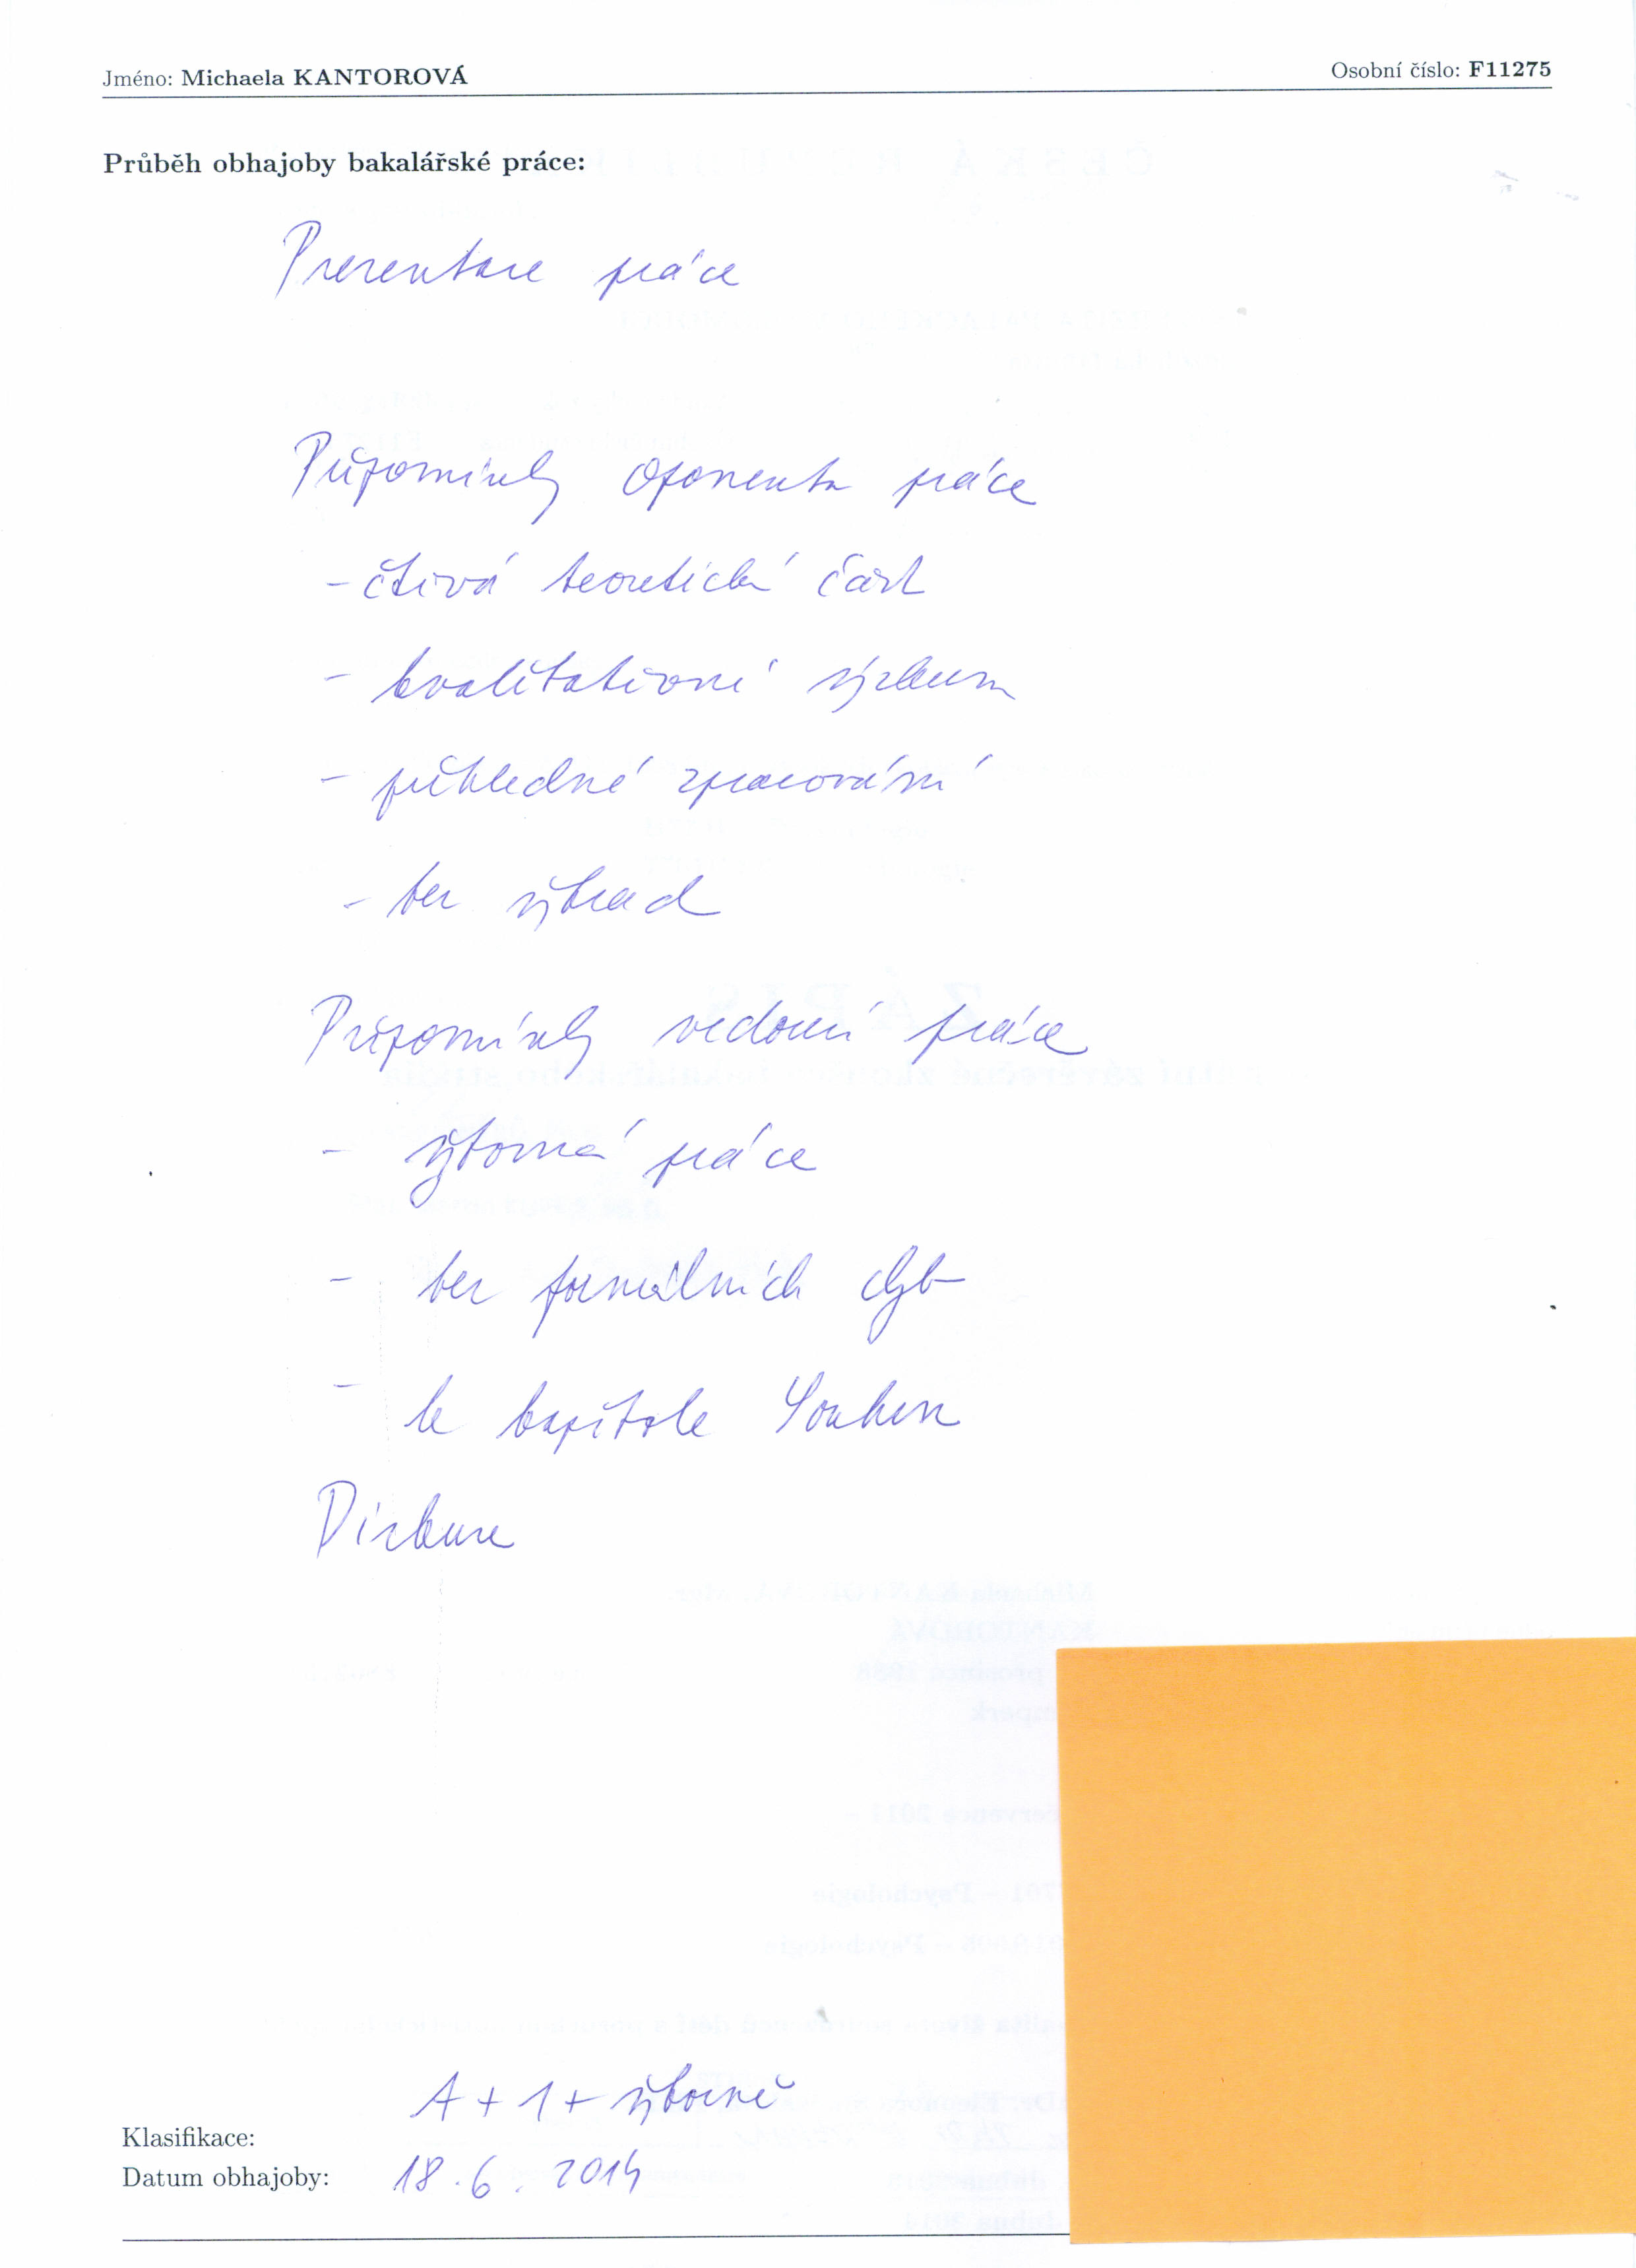 Jméno: Michaela KANTOROVÁ Osobní číslo: F11275
Průběh obhajoby bakalářské práce:
Prezentace práce
Připomínky oponenta práce
- čtivá teoretická část
- kvalitativní výzkum
- přehledné zpracování
- bez výhrad
Připomínky vedoucí práce
- výborná práce
- bez formálních chyb
- k kapitole Souhrn
Diskuse
A + 1 + výborně
Klasifikace:
Datum obhajoby: 18. 6. 2014